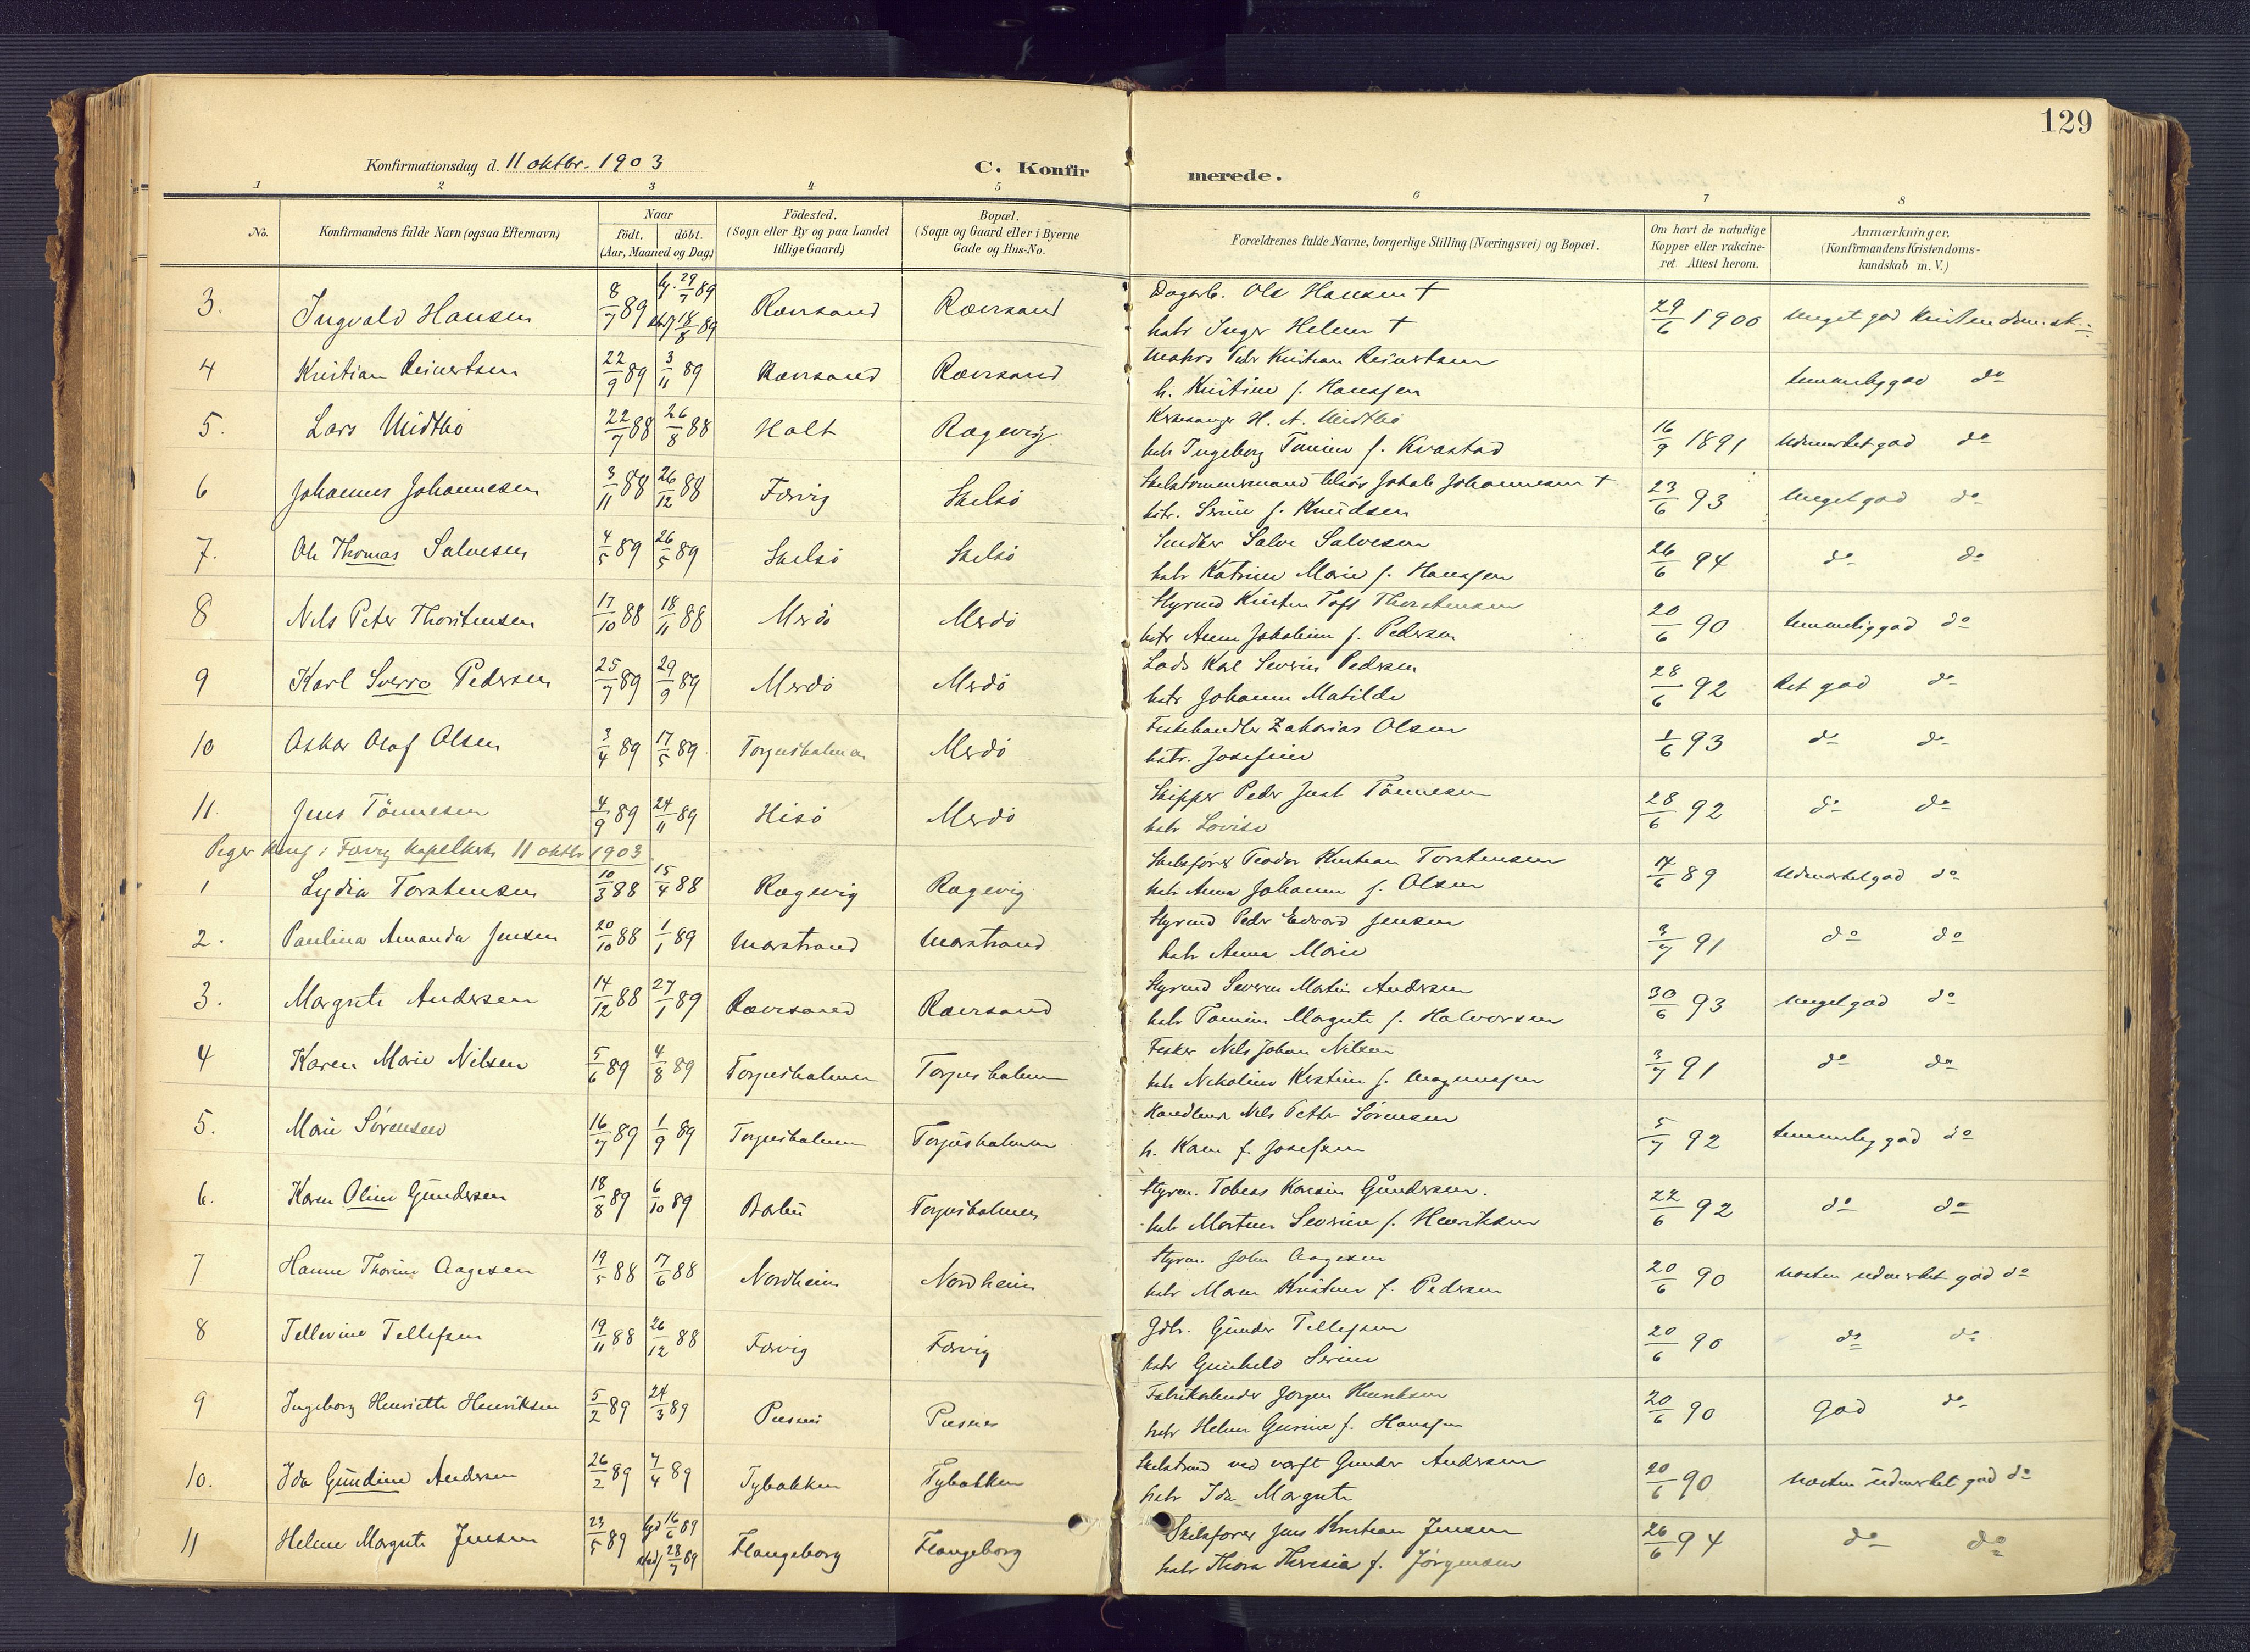 129
Konfirmationsdag d. 11 oktbr. 1903
C. Konfirmerede.
1 2 3 4 5 6 7 8
No.
Konfirmandens fulde Navn (ogsaa Efternavn)
Naar
födt. döbt.
(Aar, Maaned og Dag)
Födested.
(Sogn eller By og paa Landet
tillige Gaard)
Bopæl.
(Sogn og Gaard eller i Byerne
Gade og Hus-No.
Forældrenes fulde Navne, borgerlige Stilling (Næringsvei) og Bopæl.
Om havt de naturlige
Kopper eller vakcine-
ret. Attest herom.
Anmærkninger.
(Konfirmandens Kristendoms-
kundskab m. V.)
3. Ingvald Hansen 8/7 89 29/7 89 18/8 89 Rævesand Rævesand Dagarb. Ole Hansen † 29/6 1900 meget god Kristendomsk.
hstr Inger Helene †
4 Kristian Reinertsen 22/9 89 3/11 89 Rævesand Rævesand Matros Peder Kristian Reinertsen temmelig god do
h. Kristine f. Hanssen
5. Lars Midtbö 22/7 88 26/8 88 Holt Ragevig Kirkesanger H. A. Midtbö 16/9 1891 udmærket god do
hstr Ingeborg Tomine f. Kvastad
6 Johannes Johannesen 3/11 88 26/12 88 Færvig Skilsö Jakob Johannesen † 23/6 93 meget god do
hstr. Serine f. Knudsen
7. Ole Thomas Salvesen 4/5 89 26/5 89 Skilsö Skilsö Snedker Salve Salvesen 26/6 94 do do
hstr Katrine Marie f. Hanssen
8 Nils Peter Thorstensen 17/10 88 18/11 88 Merdö Merdö Styrmd Kristen Toft Thorstensen 20/6 90 temmelig god do
hstr Anne Jakobine f. Pedersen
9 Karl Sverre Pedersen 25/7 89 29/9 89 Merdö Merdö Lods Karl Severin Pedersen 28/6 92 Ret god do
hstr Johanne Matilde
10 Oskar Olaf Olsen 3/4 89 17/5 89. Torjusholmen Merdö Fiskehandler Zakarias Olsen 1/6 93 do do
hstr. Josefine
11. Jens Tönnesen 4/9 89 24/11 89 Hisö Merdö Skipper Peder Just Tönnesen 28/6 92 do do
hstr Lovise
Piger konf. i Færvig kapelkirke 11 oktbr 1903
1 Lydia Torstensen 10/3 88 15/4 88 Ragevig Ragevig Skibsförer Teodor Kristian Torstensen 14/6 89 udmærket god do
hstr Anna Johanne f. Olsen
2. Paulina Amanda Jensen 20/10 88 1/1 89 Marstrand Marstrand Styrmd Peder Edvard Jensen 3/7 91 do do
hstr Anna Marie
3. Margrete Andersen 14/12 88 27/1 89 Rævesand Rævesand Styrmd Severin Martin Andersen 30/6 93 meget god do
hstr Tomine Margrete f. Halvorsen
4 Karen Marie Nilsen 5/6 89 4/8 89 Torjusholmen Torjusholmen Fisker Nils Johan Nilsen 3/7 91 do do
hstr Nikoline Kristine f. Magnussen
5. Marie Sörensen 16/7 89 1/9 89 Torjusholmen Torjusholmen Handlende Nils Petter Sörensen 5/7 92 temmelig god do
h. Karen f. Josefsen
6. Karen Oline Gundersen 18/8 89 6/10 89 Barbu Torjusholmen Styrm. Tobias Gundersen. 22/6 92 do do
hstr Martine Severine f. Henriksen
7 Hanne Thorine Aagesen 19/5 88 17/6 88 Nordheim Nordheim Styrm. John Aagesen 20/6 90 næsten udmærket god do
hstr Maren Kristine f. Pedersen
8 Tellevine Tellefsen 19/11 88 26/12 88 Færvig Færvig Gdb. Gunder Tellefsen 20/6 90 do do
hstr Gunhild Serine
9 Ingeborg Henriette Henriksen 5/2 89 24/3 89 Pusnes Pusnes Fabrikarbeider Jørgen Henriksen 20/6 90 god do
hstr Helene Gurine f. Hanssen
10. Ida Gundine Andersen 26/2 89 7/4 89 Tybakken Tybakken ved værft Gunder Andersen 20/6 90 næsten udmærket god do
hstr Ida Margrete
11 Helene Margrete Jensen 23/5 89 16/6 89 28/7 89 Flangeborg Flangeborg Skibsförer Jens Kristian Jensen 26/6 94 do do
hstr Thora Theresia f. Jörgensen